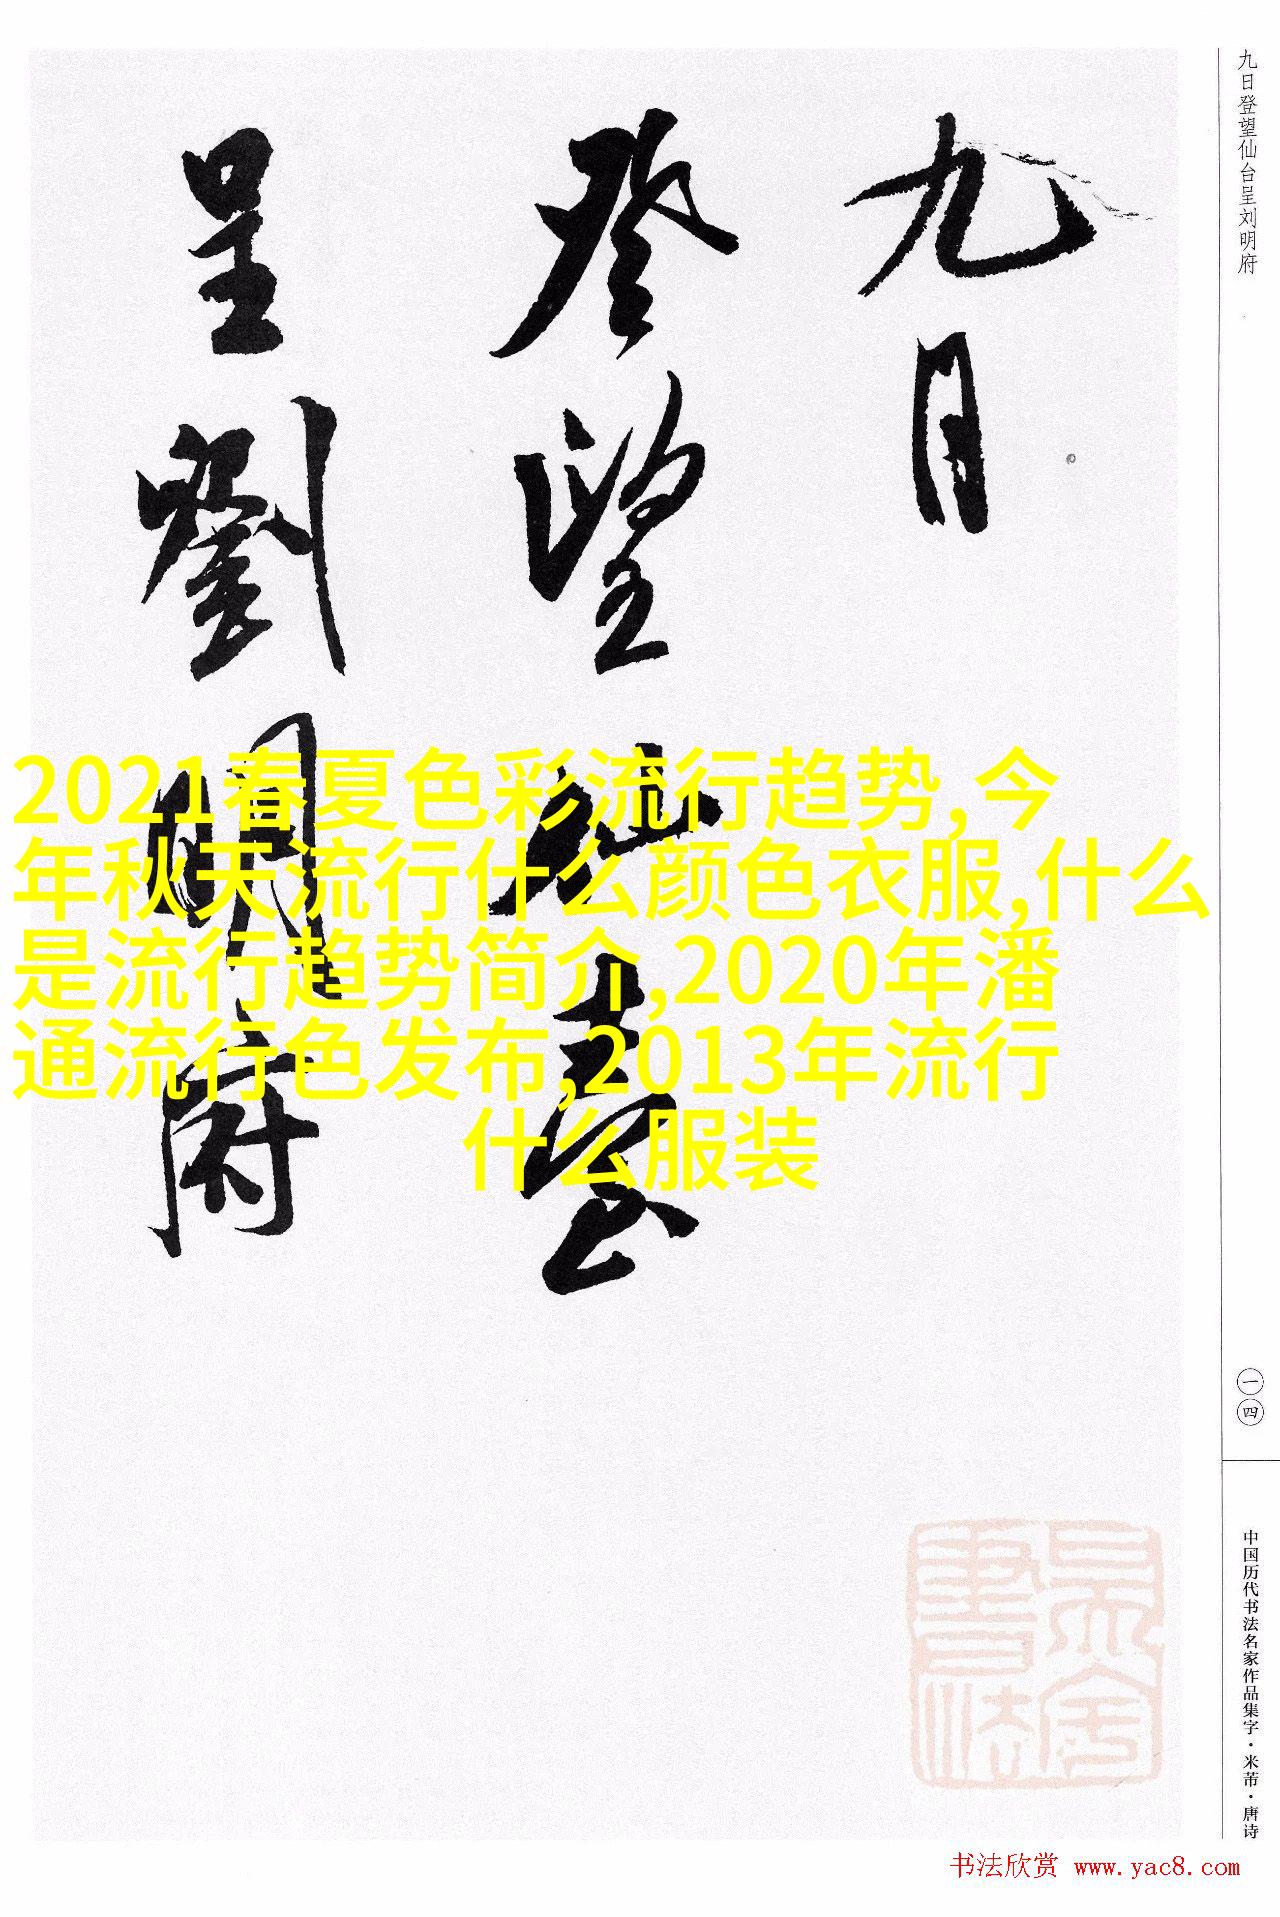 九日登望仙台呈刘明府
九日
登望仙臺
呈劉明府
2021春夏色彩流行趋势,今
年秋天流行什么颜色衣服,什么
是流行趋势简介,2020年潘
通流行色发布,2013年流行
什么服装
一四
中国历代书法名家作品集字·米芾·唐诗
书法欣赏 www.yac8.com